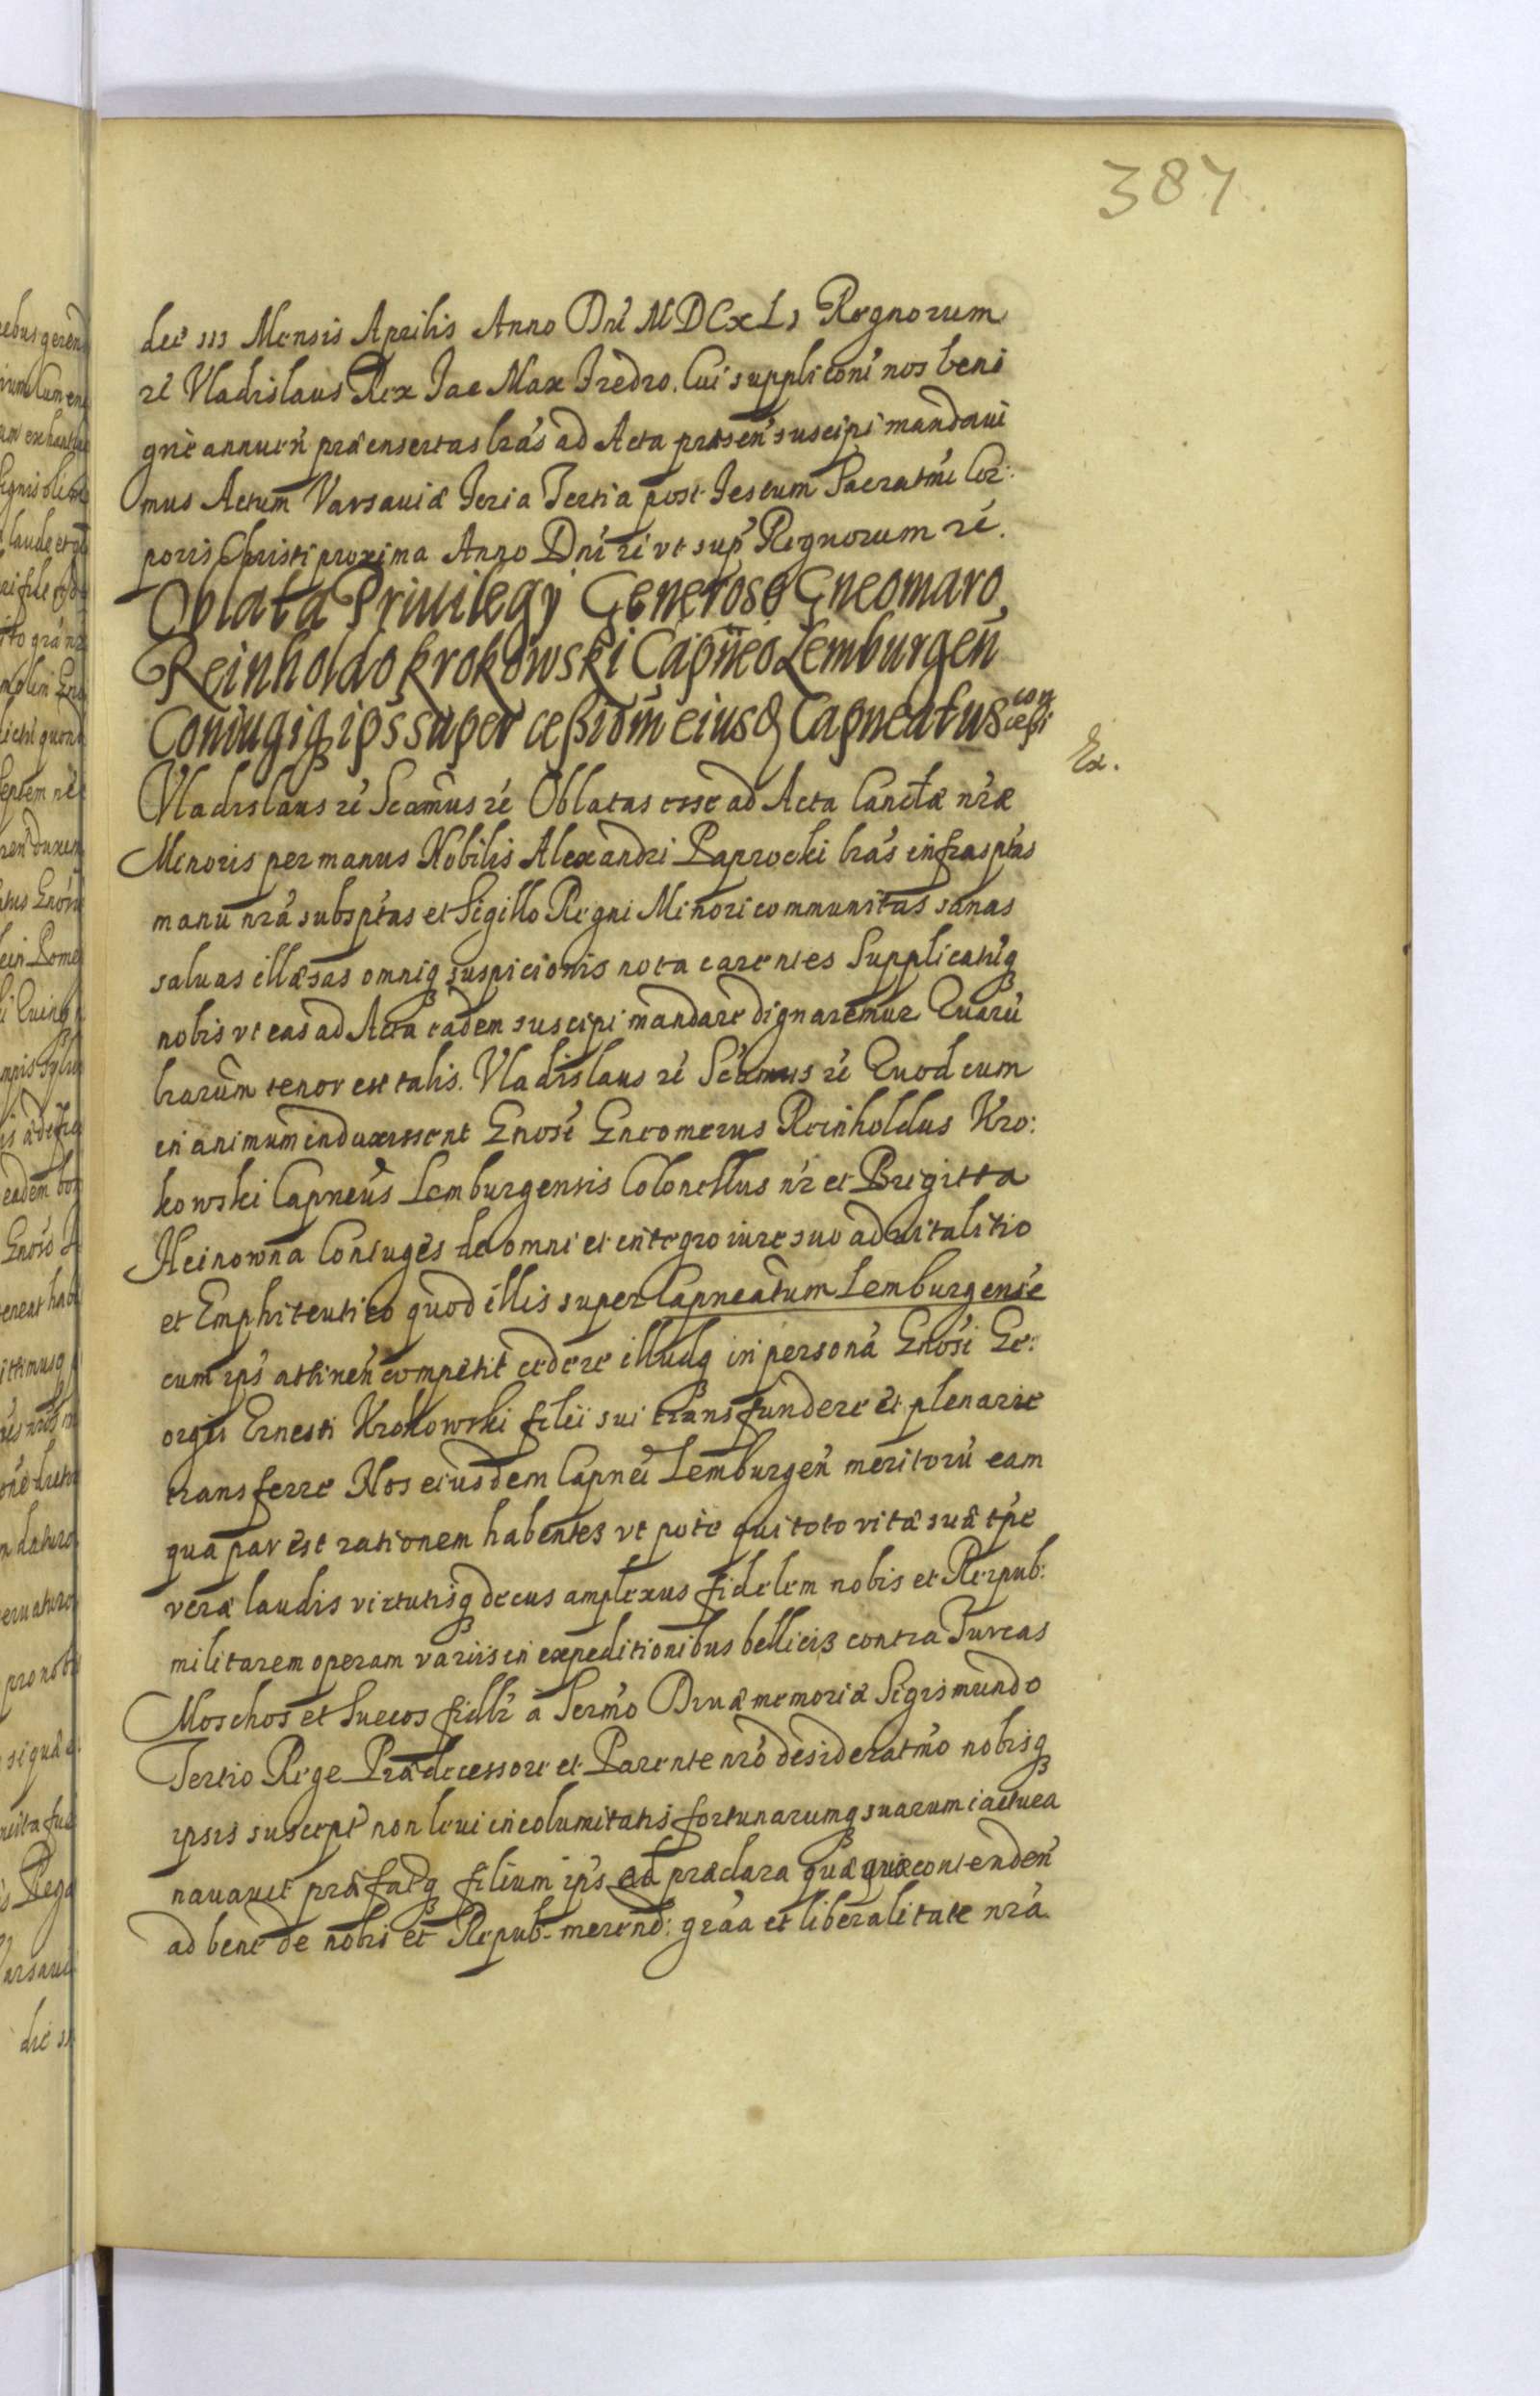 387.
die III Mensis Aprilis Anno Dni MDCXLI Regnorum
ré Vladislaus Rex Jac Max Fredro. Cui suppliconi nos beni
gne annuen̄ præinsertas lrás ad Acta præsen̄ suscipi mandaui
mus Actum Varsauiæ Feria Tertia post Festum Sacratmi Cor:
poris Christi proxima Anno Dni ré vt sup̄ Regnorum ré.
Oblata Priuilegÿ Generoso Gneomaro
Reinholdo Krokowski Capneo Lemburgen̄
Coniugiq ips̄ super cessiom̄ eiusd Capneatus con
cessi
Ex.
Vladislaus ré Scamus ré Oblatas esse ad Acta Canctæ nræ
Minoris per manus Nobilis Alexandri Paprocki lrás infrasptas
manu nrá subsptas et Sigillo Regni Minori communitas sanas
saluas illæsas omniq suspicionis nota carentes Supplicatūq
nobis vt eas ad Acta eadem suscipi mandare dignaremur Quarū
lrarum tenor est talis. Vladislaus ré Scamus ré Quod cum
in animum induxissent Gnosi Gneomerus Reinholdus Kro:
kowski Capneus Lemburgensis Colonellus nr et Brigitta
Heinowna Coniuges de omni et integro iure suo aduitalitio
et Emphiteutico quod illis super Capneatum Lemburgense
cum ips̄ attinen̄ competit cedere illudq in personā Gnosi Ge:
orgÿ Ernesti Krokowski filii sui transfundere et plenarie
transferre Nos eiusdem Capnei Lemburgen̄ meritorū eam
qua par est rationem habentes vt pote qui toto vitæ suæ tp̄e
veræ laudis virtutisq decus amplexus fidelem nobis et Reipub:
militarem operam variis in expeditionibus bellicis contra Turcas
Moschos et Suecos fidlr a Sermo Diuæ memoriæ Sigismundo
Tertio Rege Prædecessore et Parente nro desideratmo nobisq
ipsis suscept̄ non leui incolumitatis fortunarumq suarum iactura
nauauit præfatq filium ips̄ ad præclara quæque contenden̄
ad bene de nobis et Repub. merend: gráa et liberalitate nrá